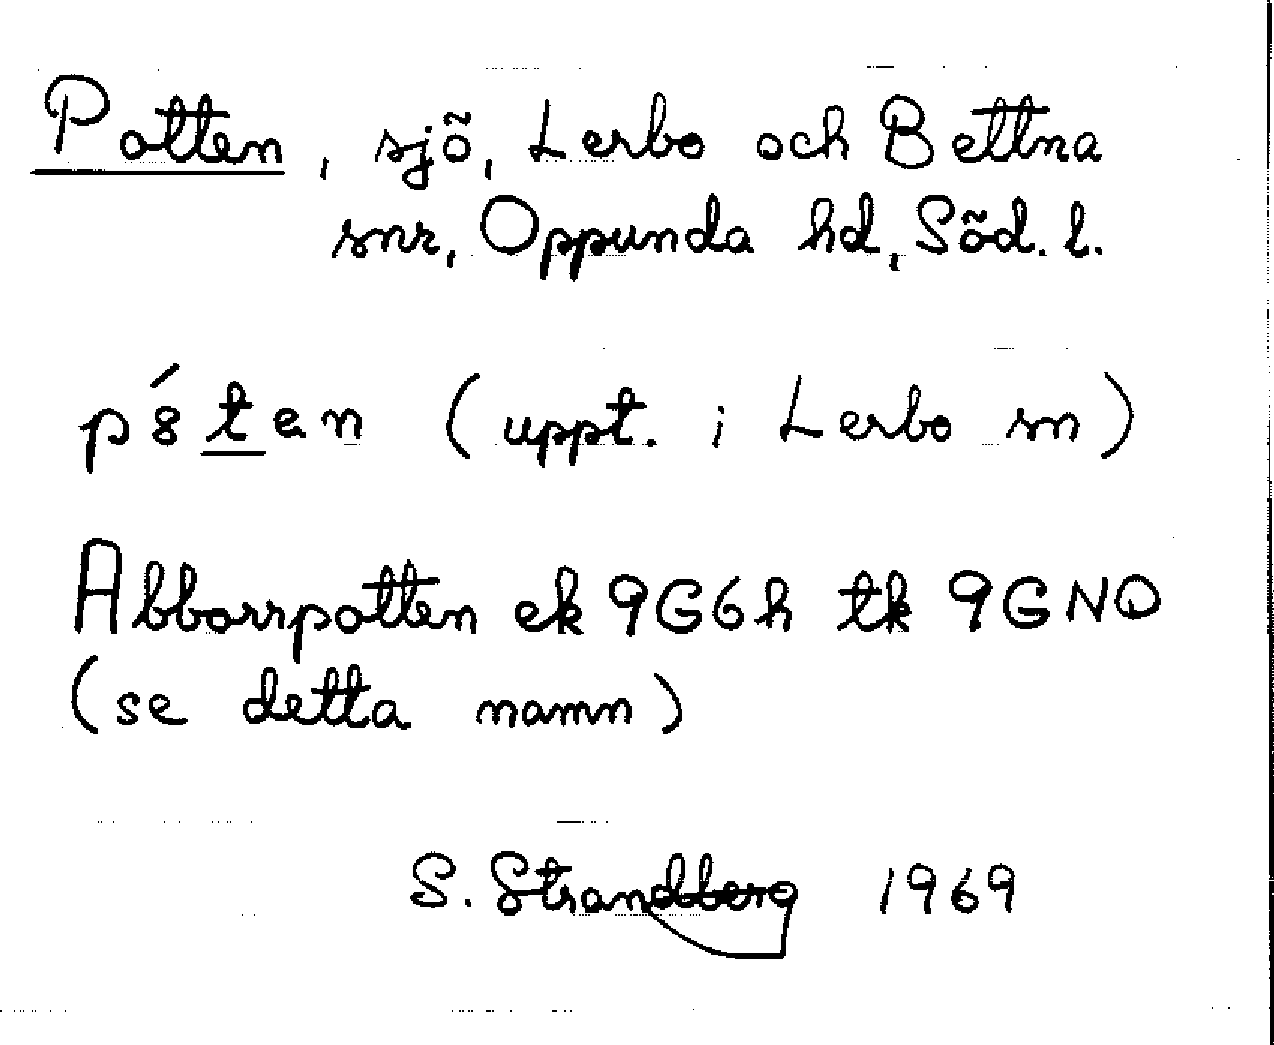 Potten, sjö, Lerbo och Bettna
snr, Oppunda hd, Söd. l.
p8́ten (uppt. i Lerbo sn)
Abborrpotten ek 9G6h tk 9GNO
(se detta namn)
S. Strandberg 1969